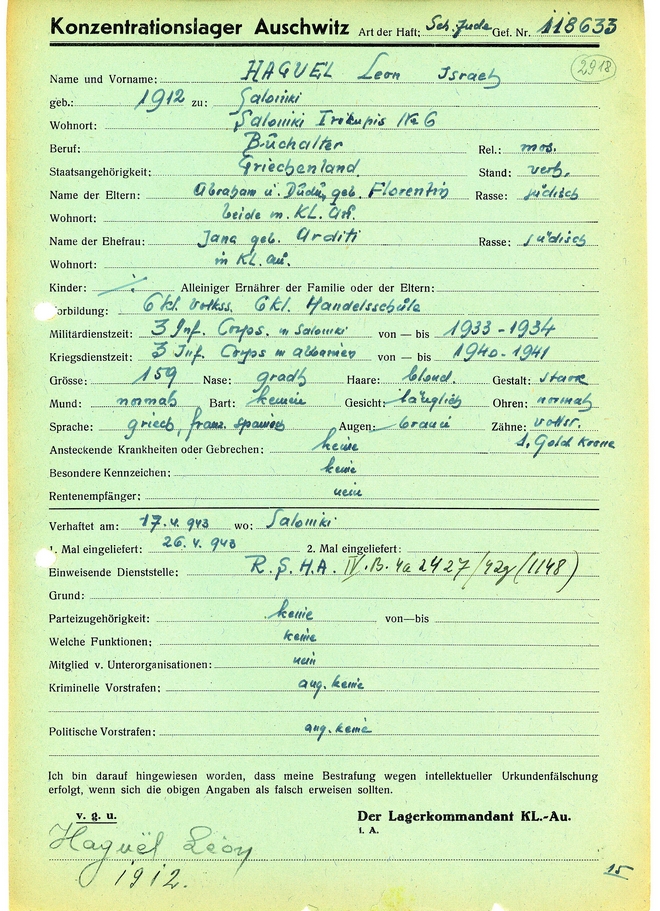 Konzentrationslager Auschwitz Art der Haft: Sch. Jude Gef. Nr. 118633
2918
Name und Vorname: HAGUEL Leon Israel
geb.: 1912 zu: Saloniki
Wohnort: Saloniki No 6
Beruf: Buchalter Rel.: mos.
Staatsangehörigkeit: Griechenland Stand: verh.
Name der Eltern: Abraham u. geb. Florentin Rasse: jüdisch
Wohnort: beide in KL. Au.
Name der Ehefrau: Jana geb. Arditi Rasse: jüdisch
Wohnort: in KL. Au.
Kinder: Alleiniger Ernährer der Familie oder der Eltern:
Vorbildung: 6 kl. Volkss. 6 kl. Handelsschule
Militärdienstzeit: 3 Inf. Corps. in Saloniki von — bis 1933 - 1934
Kriegsdienstzeit: 3 Inf. Corps in Albanien von — bis 1940 - 1941
Grösse: 159 Nase: grad Haare: blond. Gestalt: stark
Mund: normal Bart: keinen Gesicht: länglich Ohren: normal
Sprache: griech, franz. spanisch Augen: braun Zähne: vollst.
Ansteckende Krankheiten oder Gebrechen: keine 1. Gold Krone
Besondere Kennzeichen: keine
Rentenempfänger: nein
Verhaftet am: 17. 4. 943 wo: Saloniki
1. Mal eingeliefert: 26. 4. 943 2. Mal eingeliefert:
Einweisende Dienststelle: R. S. H. A. IV. B. 4a 2427/42g (1148)
Grund:
Parteizugehörigkeit: keine von—bis
Welche Funktionen: keine
Mitglied v. Unterorganisationen: nein
Kriminelle Vorstrafen: ang. keine
Politische Vorstrafen: ang. keine
Ich bin darauf hingewiesen worden, dass meine Bestrafung wegen intellektueller Urkundenfälschung
erfolgt, wenn sich die obigen Angaben als falsch erweisen sollten.
v. g. u. Der Lagerkommandant KL.-Au.
i. A.
Haguël Léon
1912.
15